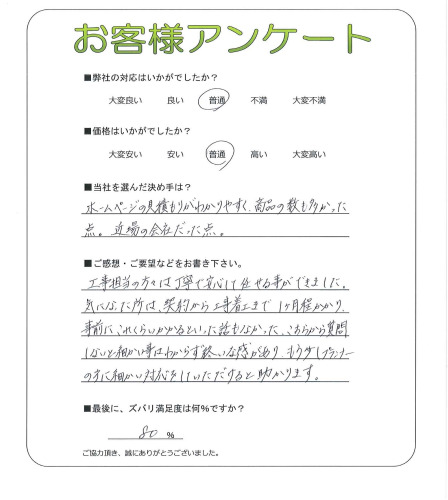 お客様アンケート
■弊社の対応はいかがでしたか?
大変良い 良い 普通 不満 大変不満
■価格はいかがでしたか?
大変安い 安い 普通 高い 大変高い
■当社を選んだ決め手は?
ホームページの見積もりがわかりやすく、商品の数も多かった
点。近場の会社だった点。
■ご感想・ご要望などをお書き下さい。
工事担当の方々は丁寧で安心して任せる事ができました。
気になった所は、契約から工事着工まで1ヶ月程かかり、
事前にこれくらいかかるといった話もなかった、こちらから質問
しないと細かい事はわからず終いな感があり、もう少しプランナー
の方に細かい対応をしていただけると助かります。
■最後に、ズバリ満足度は何%ですか?
80 %
ご協力頂き、誠にありがとうございました。